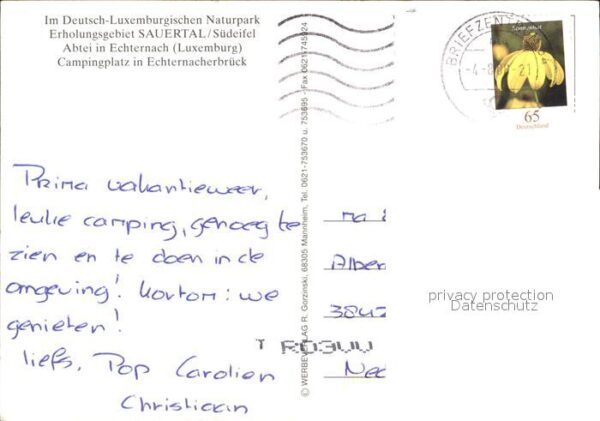 Im Deutsch-Luxemburgischen Naturpark
Erholungsgebiet SAUERTAL/Südeifel
Abtei in Echternach (Luxemburg)
Campingplatz in Echternacherbrück
BRIEFZEN
-4-8
21
65
Deutschland
Prima vakantieweer,
leuke camping, genoeg te
zien en te doen in de
omgeving! kortom: we
genieten!
liefs, Pop Carolien
Christiaan
© WERBEVERLAG R. Gorzinski, 68305 Mannheim, Tel. 0621-753670 u. 753695 - Fax 0621-745924
Alber
3842
Ned
privacy protection
Datenschutz